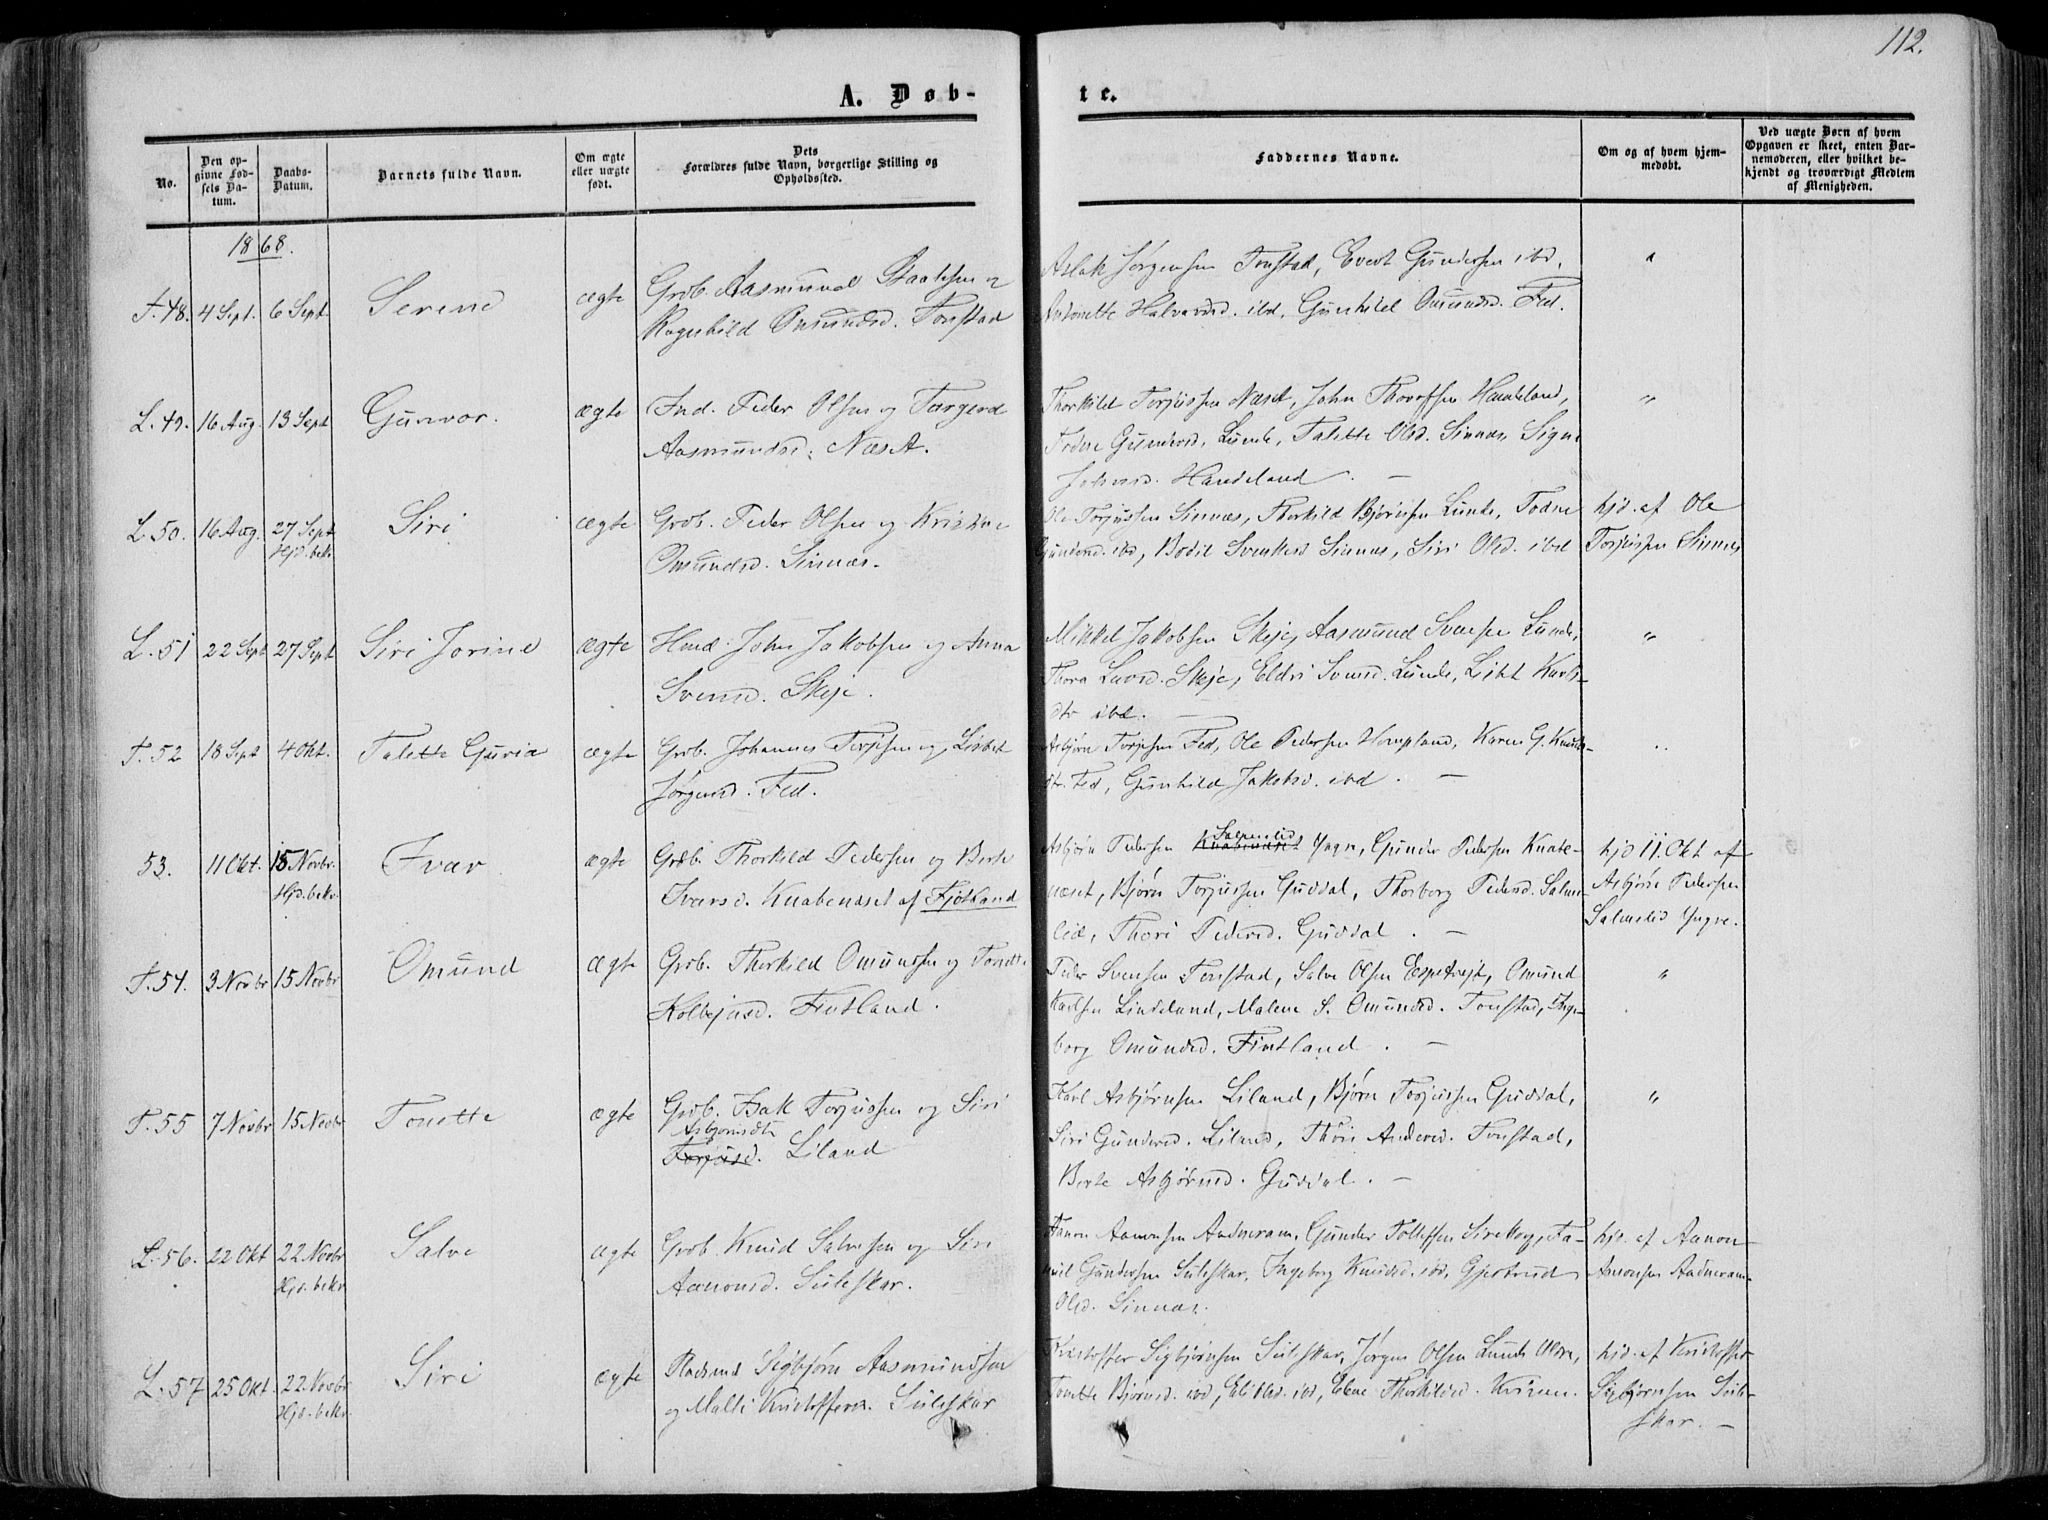 112.
A. Døb-
te.
No.
Den op-
givne Fød-
sels Da-
tum.
Daabs-
Datum.
Barnets fulde Navn.
Om ægte
eller uægte
født.
Dets
Forældres fulde Navn, borgerlige Stilling og
Opholdssted.
Faddernes Navne.
Om og af hvem hjem-
medøbt.
Ved uægte Børn af hvem
Opgaven er skeet, enten Bar-
nemoderen, eller hvilket be-
kjendt og troværdigt Medlem
af Menigheden.
1868.
T. 48. 4 Sept. 6 Sept. Serene ægte Grdb. Aasmund
Ragnhild Omundsd. Tonstad
Aslak Jørgensen Tonstad, Evert Gundersen ibd.
Antonette Halvorsd. ibd, Gunhild Omundsd. Fed.
L. 49. 16 Aug. 13 Sept Gunvor. ægte Ind. Peder Olsen og Torgerd
Aasmundsd. Næset.
Thorkild Torjussen Næset, John Haneland,
Todne Gundersd. Lunde, Talette Olsd. Sinnæs, Signe
Johnsd. Haneland. —
L. 50. 16 Aug. 27 Sept Siri ægte Grdb. Peder Olsen og Kristine
Hjd. bekr.
Omundsd. Sinnæs.
Ole Torjussen Sinnæs, Thorkild Bjørnsen Lunde, Todne
Gundersd. ibd, Bodil Svenkesd Sinnæs, Siri Olsd. ibd
hjd. af Ole
Torjussen Sinnæs
L. 51 22 Sept 27 Sept Siri Jorine ægte Hmd. John Jakobsen og Anna
Svensd. Skeje.
Mikkel Jakobsen Skeje, Aasmund Svensen Lunde,
Thora Larsd. Skeje, Eldri Svensd. Lunde, Lisbt Karls-
dtr ibd. —
T. 52 18 Sept 4 Okt. Talette Guria ægte Grdb. Johannes Torjusen og Lisbet
Jørgensd. Fed.
Asbjørn Torjusen Fed, Ole Pedersen Hompland, Karen G. Knuds-
dtr. Fed, Gunhild Jakobsd. ibd. —
53. 11 Okt. 15 Novbr. Ivar ægte Grdb. Thorkild Pedersen og Berte
Hjd. bekr.
Ivarsd. Knabenæset af Fjotland
Salmelid
Asbjørn Pedersen Knabenæset Yngre, Gunder Pedersen Knabe-
næset, Bjørn Torjussen Guddal, Thorborg Pedersd. Salme-
lid, Thori Pedersd. Guddal. —
hjd 11. Okt af
Asbjørn Pedersen
Salmelid Yngre.
T. 54. 3 Novbr 15 Novbr Omund ægte Grdb. Thorkild Omundsen og Tonette
Kolbejnsd. Fintland.
Peder Svensen Tonstad, Salve Olsen Espetvejt, Omund
Karlsen Lindeland, Malene S. Omundsd. Tonstad, Inge-
borg Omundsd. Fintland. —
T. 55 7 Novbr 15 Novbr Tonette ægte Grdb. Isak Torjussen og Siri
Asbjørnsdtr
Torjusd. Liland
Karl Asbjørnsen Liland, Bjørn Torjussen Guddal,
Siri Gundersd. Liland, Thöri Andersd. Tonstad,
Berte Asbjørnsd. Guddal. —
L. 56. 22 Okt 22 Novbr Salve ægte Grdb. Knud Salvesen og Siri
Hjd. bekr
Aanonsd. Suleskar.
Aanon Aanonsen Aadneram, Gunder Tollefsen Sireskog, Ta-
niel Gundersen Suleskar, Ingeborg Knudsd. ibd, Gjertrud
Olsd. Sinnæs.
hjd. af Aanon
Aanonsen Aadneram
L. 57 25 Okt. 22 Novbr Siri ægte Sigbjørn Aasmundsen
Hjd. bekr.
og Malli Kristoffersd. Suleskar
Kristoffer Sigbjørnsen Suleskar, Jørgen Olsen Lunde Ødn,
Tonette Bjørnsd. ibd, Eli Olsd. ibd, Elene Thorkildsd. Kvæven.
hjd. af Kristoffer
Sigbjørnsen Sule-
skar. —